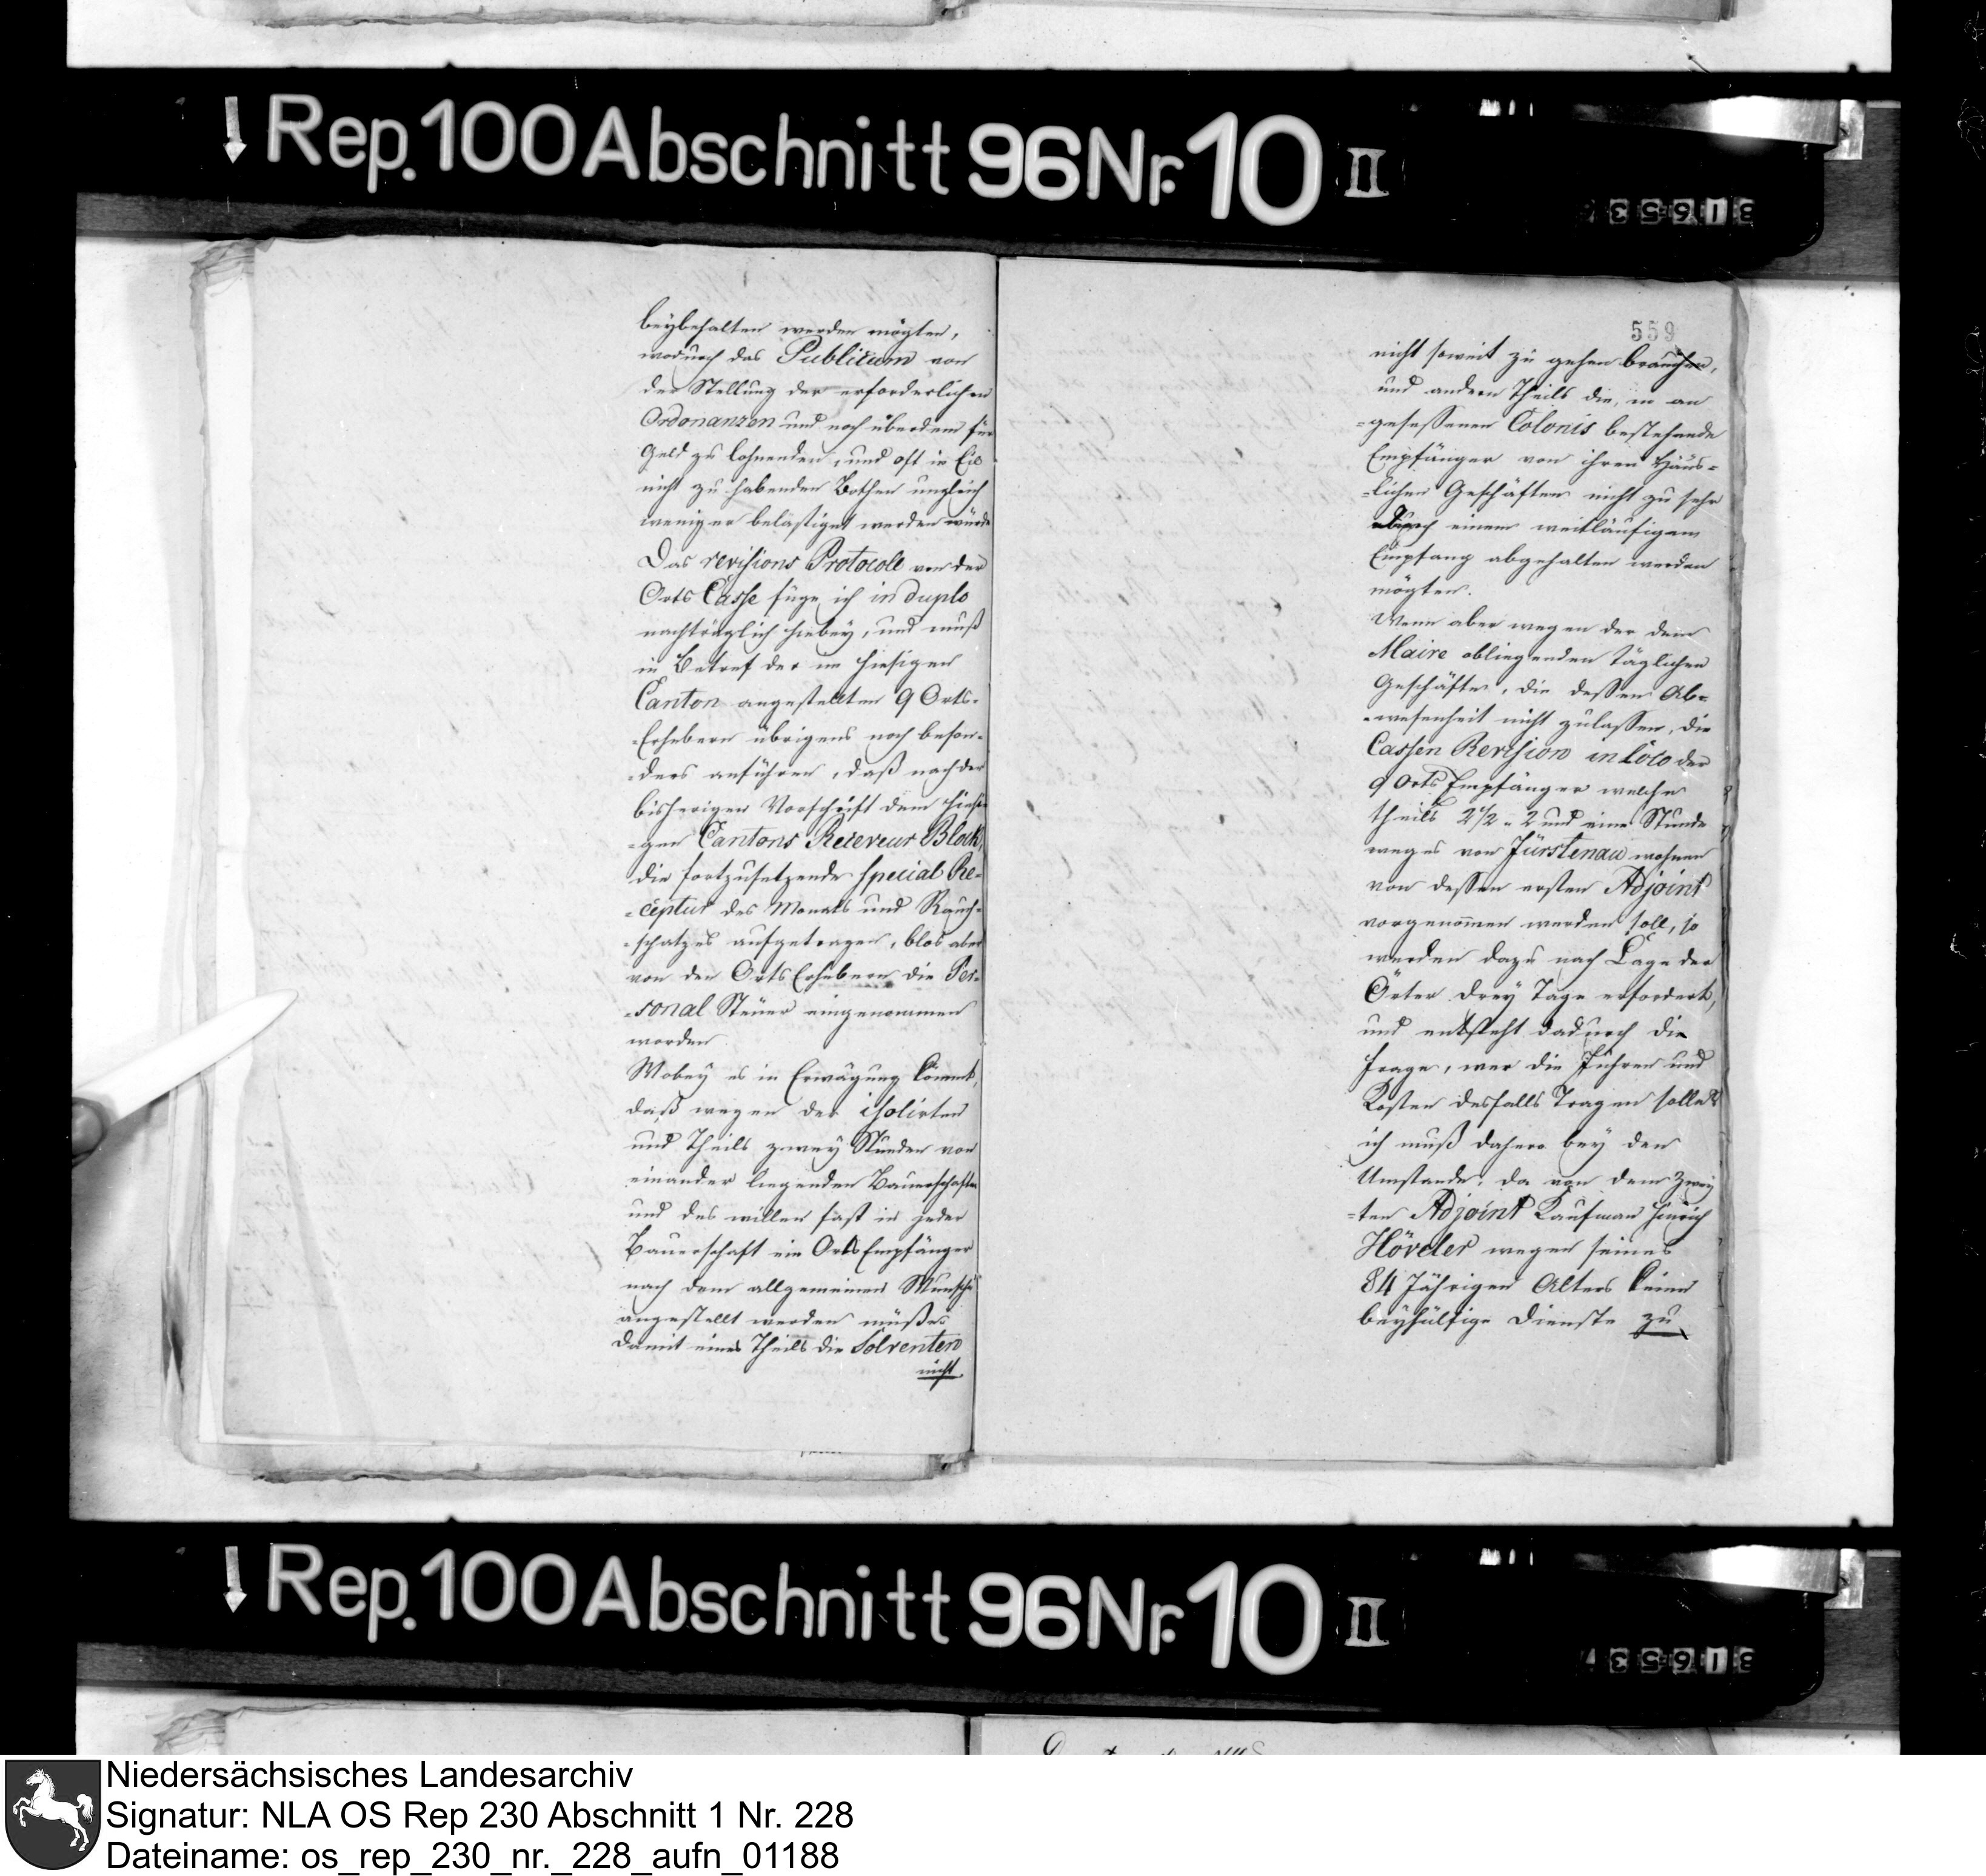 Rep. 100 Abschnitt 96 Nr. 10 II
316537
beybehalten werden mögten,
wodurch das Publicum von
der Stellung der erforderlichen
Ordonanzen und noch überdem für
Geld zu lohnenden, und oft in Eil
nicht zu habenden Bothen ungleich
weniger belästiget werden würde
Das revisions Protocoll von der
Orts Casse füge ich in duplo
nachträglich hiebey, und muß
in Betref der im hiesigen
Canton angestellten 9 Orts-
-Erhebern übrigens noch beson-
-ders anführen, daß nach der
bisherigen Vorschrift dem hiesi-
-gen Cantons Receveur Block,
die fortzusetzende special Re-
-ceptur des Monats und Rauch-
-schatzes aufgetragen, blos aber
von den Orts Erhebern die Per-
-sonal Steuer eingenommen
worden
Wobey es in Erwägung kömmt,
daß wegen der isolirten
und Theils zwey Stunden von
einander liegenden Bauerschaften
und des willen fast in jeder
Bauerschaft ein Orts Empfänger
nach dem allgemeinen Wunsche
angestellt werden müße
damit eines Theils die Solventen
nicht
559
nicht soweit zu gehen brauchen,
und andern Theils die, in an
-gesessenen Colonis bestehende
Empfänger von ihren Häus-
-lichen Geschäften nicht zu sehr
durch einem weitläufigem
Empfang abgehalten werden
mögten.
Wenn aber wegen der dem
Maire obliegenden täglichen
Geschäfte, die dessen Ab-
-wesenheit nicht zulassen, die
Cassen Revision in Loco der
9 Orts Empfänger welche
theils 2 1/2 - 2 und eine Stunde
weges von Fürstenau wohnen
von dessen ersten Adjoint
vorgenommen werden soll, so
werden dazu nach Lage der
Örter drey Tage erfordert,
und entsteht dadurch die
Frage, wer die Fuhren und
Kosten desfalls Tragen solle
ich muß dahero bey den
Umstande, da von dem zwey
-ten Adjoint Kaufman Hinrich
Hövder wegen seines
84 Jährigen Alters keine
beyhülfige Dienste zu
Rep. 100 Abschnitt 96 Nr. 10 II
316537
Niedersächsisches Landesarchiv
Signatur: NLA OS Rep 230 Abschnitt 1 Nr. 228
Dateiname: os_rep_230_nr._228_aufn_01188